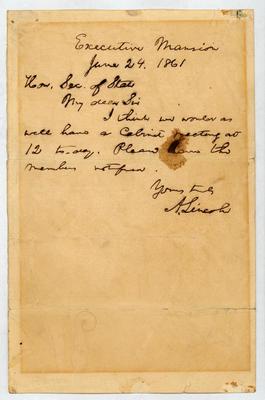 Executive Mansion
June 24. 1861
Hon. Sec. of State
My dear Sir
I think we would as
well have a Cabinet meeting at
12 to-day. Please have the
members notified.
Yours truly
A. Lincoln